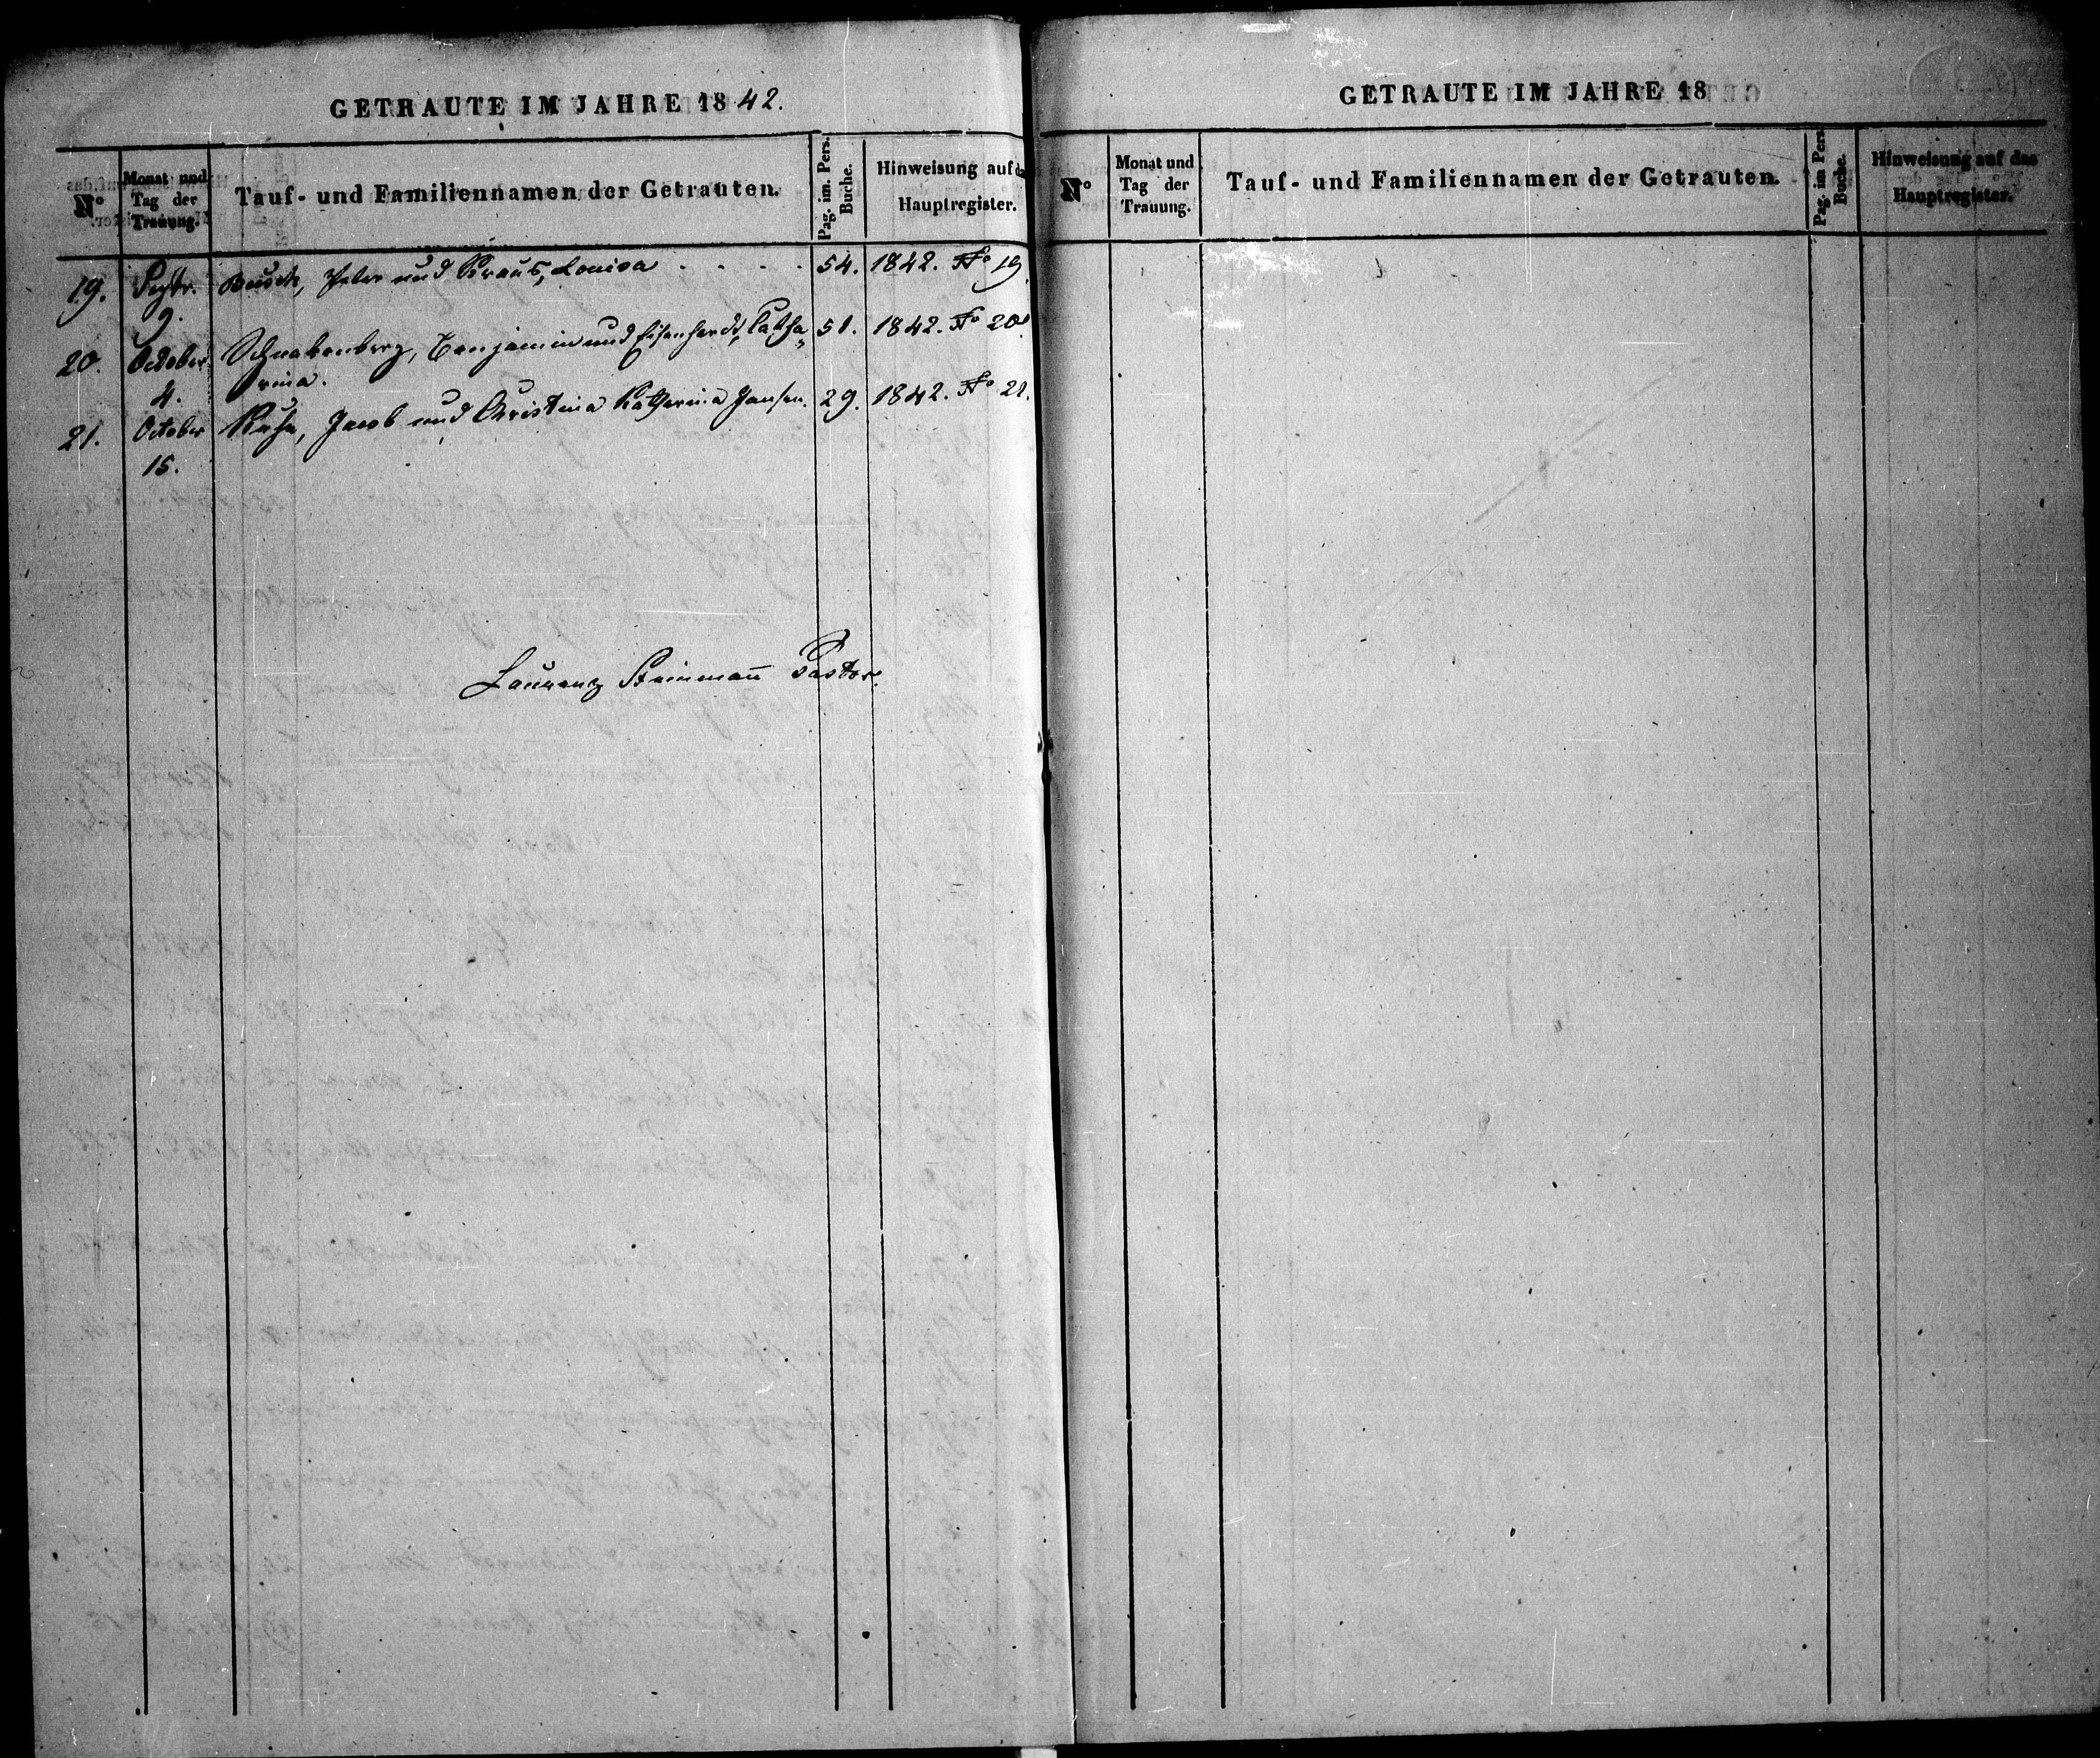 GETRAUTE IM JAHRE 1842.
No
Monat und Tag der Trauung.
Tauf- und Familiennamen der Getrauten.
Pag. im Pers. Buche.
Hinweisung auf das Hauptregister.
19. Septr. Busch, Peter und Kraus, Louisa . . . . 54. 1842. No 19.
9.
20. October Schnakenberg, Benjamin und Eisenhardt, Catha„ 51. 1842. No 20.
4. rina.
21. October Kuhn, Jacob und Christina Katharina Jansen. 29. 1842. No 21.
15.
Laurenz Steinman̄ Pastor.
GETRAUTE IM JAHRE 18
No
Monat und Tag der Trauung.
Tauf- und Familiennamen der Getrauten.
Pag. im Pers. Buche.
Hinweisung auf das Hauptregister.